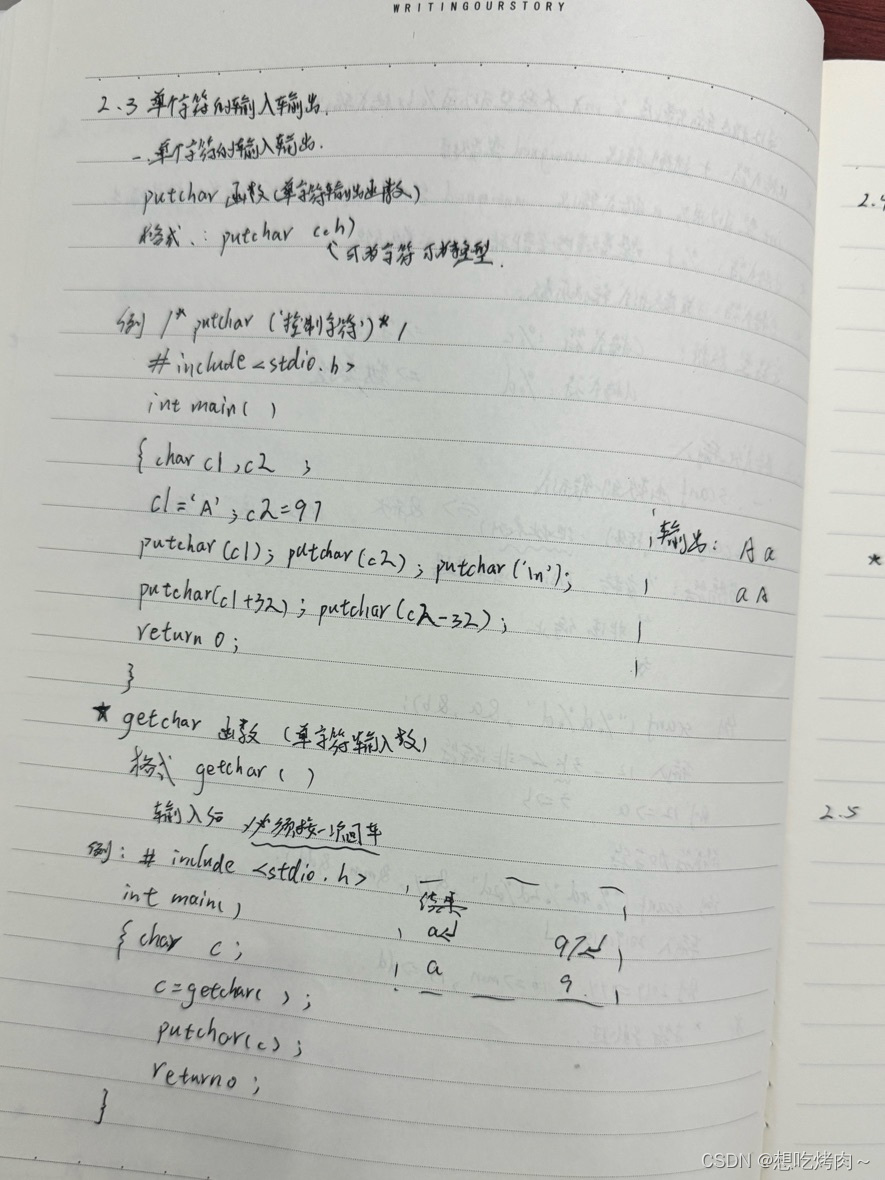 WRITINGOURSTORY
2.3 单个字符的输入输出.
一.单个字符的输入输出.
putchar 函数(单字符输出函数)
格式.: putchar (ch)
可为字符 可为整型.
例 /* putchar ('控制字符')*/
# include <stdio.h>
int main( )
{ char c1 ,c2 ;
c1='A' ; c2=97
putchar(c1); putchar(c2) ; putchar('\n');
putchar(c1+32) ; putchar(c2-32) ;
return 0 ;
}
输出: A a
a A
* getchar 函数 (单字符输入数)
格式 getchar ( )
输入后 必须按一次回车
例: # include <stdio.h>
int main( )
{ char c ;
c=getchar( ) ;
putchar(c) ;
return 0 ;
}
结果
a↵ 97↵
a 9
2.4
*
2.5
CSDN @想吃烤肉~